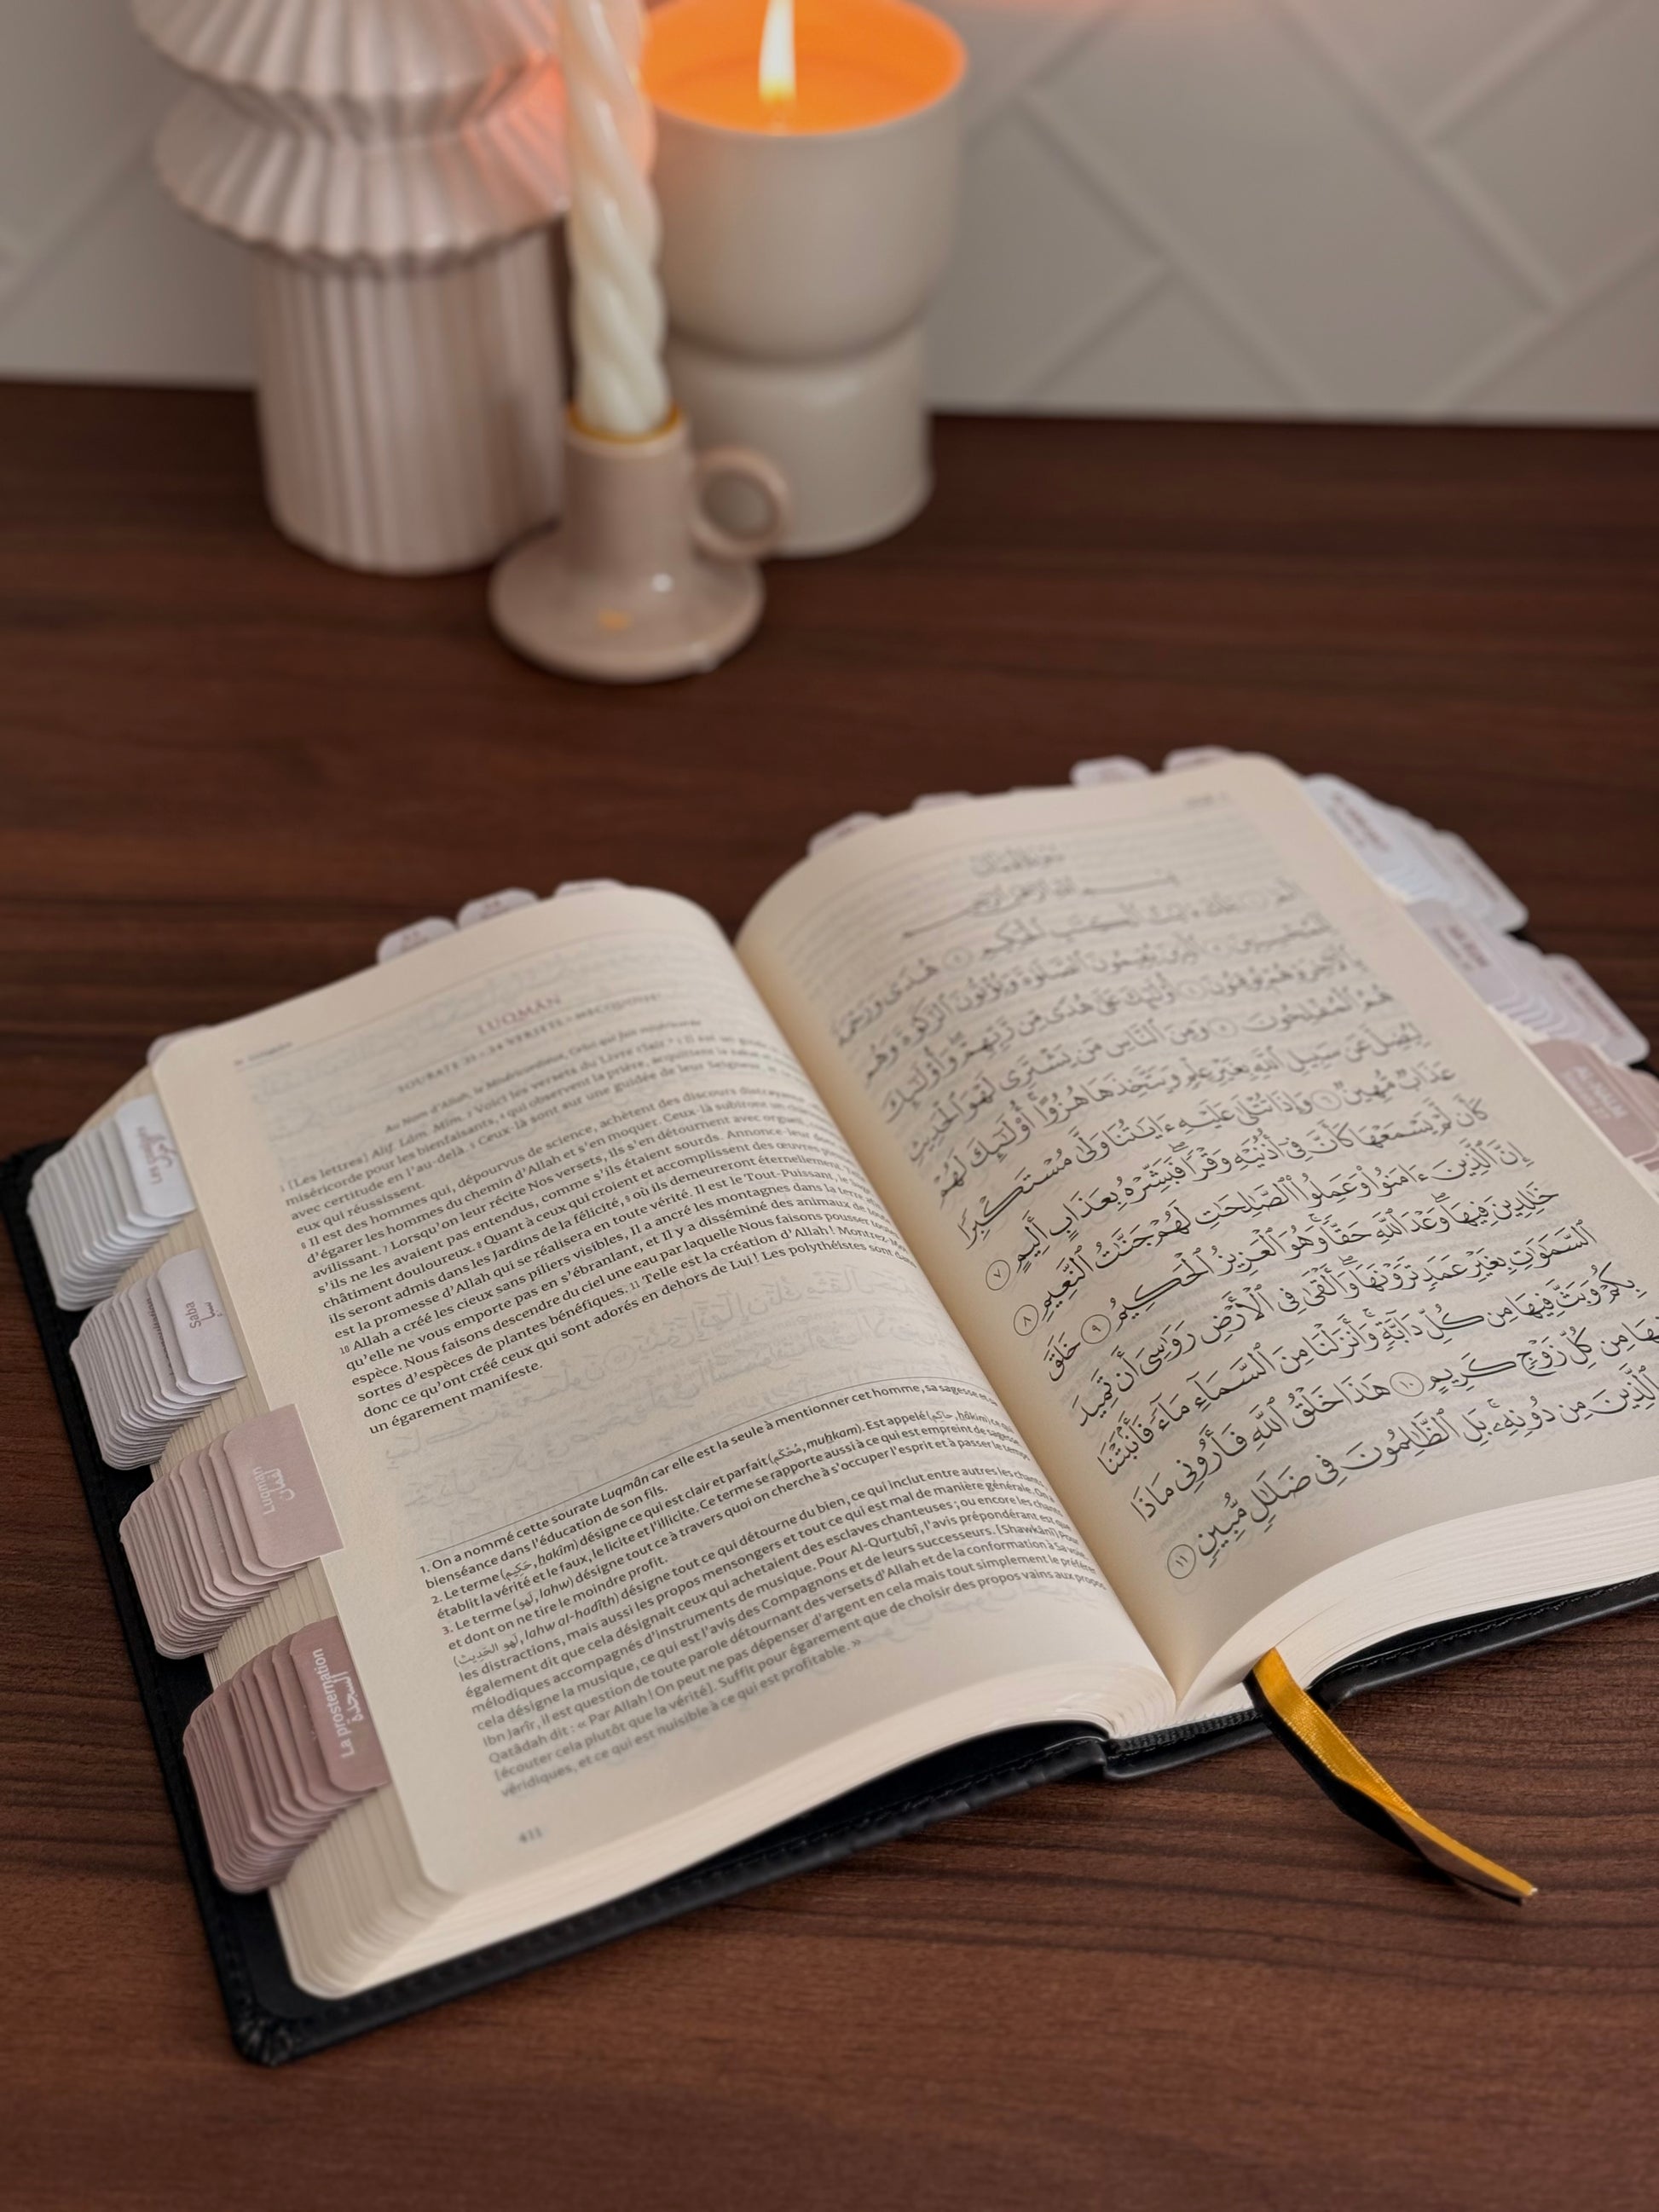 LUQMÂN
SOURATE 31 - 34 VERSETS - MECQUOISE
Au Nom d'Allah, le Miséricordieux, Celui qui fait miséricorde
1 (Les lettres) Alif, Lâm, Mîm. 2 Voici les versets du Livre clair 3 Il est un guide
miséricorde pour les bienfaisants, 4 qui observent la prière, acquittent la zakat
avec certitude en l'au-delà. 5 Ceux-là sont sur une guidée de leur Seigneur
eux qui réussissent.
6 Il est des hommes qui, dépourvus de science, achètent des discours distrayants
d'égarer les hommes du chemin d'Allah et s'en moquer. Ceux-là subiront un
avilissant. 7 Lorsqu'on leur récite Nos versets, ils s'en détournent avec orgueil
s'ils ne les avaient pas entendus, comme s'ils étaient sourds. Annonce-leur donc
châtiment douloureux. 8 Quant à ceux qui croient et accomplissent des œuvres
ils seront admis dans les Jardins de la félicité, 9 où ils demeureront éternellement. Telle
est la promesse d'Allah qui se réalisera en toute vérité. Il est le Tout-Puissant, le Sage
10 Allah a créé les cieux sans piliers visibles, Il a ancré les montagnes dans la terre
qu'elle ne vous emporte pas en s'ébranlant, et Il y a disséminé des animaux de toute
espèce. Nous faisons descendre du ciel une eau par laquelle Nous faisons pousser toutes
sortes d'espèces de plantes bénéfiques. 11 Telle est la création d'Allah! Montrez-Moi
donc ce qu'ont créé ceux qui sont adorés en dehors de Lui! Les polythéistes sont dans
un égarement manifeste.
1. On a nommé cette sourate Luqmân car elle est la seule à mentionner cet homme, sa sagesse et
bienséance dans l'éducation de son fils.
2. Le terme (حَكِيم, hakîm) désigne ce qui est clair et parfait (مُحْكَم, muhkam). Est appelé (حاكِم, hâkim) ce qui
établit la vérité et le faux, le licite et l'illicite. Ce terme se rapporte aussi à ce qui est empreint de sagesse
3. Le terme (لَهْو, lahw) désigne tout ce à travers quoi on cherche à s'occuper l'esprit et à passer le temps
et dont on ne tire le moindre profit.
(لَهْوَ الحَدِيث, lahw al-hadîth) désigne tout ce qui détourne du bien, ce qui inclut entre autres les chants
les distractions, mais aussi les propos mensongers et tout ce qui est mal de manière générale. On a
également dit que cela désignait ceux qui achetaient des esclaves chanteuses ; ou encore les chants
mélodiques accompagnés d'instruments de musique. Pour Al-Qurtubî, l'avis prépondérant est que
cela désigne la musique, ce qui est l'avis des Compagnons et de leurs successeurs. [Shawkânî] Pour
Ibn Jarîr, il est question de toute parole détournant des versets d'Allah et de la conformation à Sa voie.
Qatâdah dit : « Par Allah ! On peut ne pas dépenser d'argent en cela mais tout simplement le préférer
[écouter cela plutôt que la vérité]. Suffit pour égarement que de choisir des propos vains aux propos
véridiques, et ce qui est nuisible à ce qui est profitable. »
411
Saba
سبإ
Luqmân
لقمان
La prosternation
السجدة
ٱلْكِتَٰبِ ٱلْحَكِيمِ ٢ هُدًى وَرَحْمَةً
لِّلْمُحْسِنِينَ ٣ ٱلَّذِينَ يُقِيمُونَ ٱلصَّلَوٰةَ وَيُؤْتُونَ ٱلزَّكَوٰةَ وَهُم
بِٱلْءَاخِرَةِ هُمْ يُوقِنُونَ ٤ أُو۟لَٰٓئِكَ عَلَىٰ هُدًى مِّن رَّبِّهِمْ وَأُو۟لَٰٓئِكَ
هُمُ ٱلْمُفْلِحُونَ ٥ وَمِنَ ٱلنَّاسِ مَن يَشْتَرِى لَهْوَ ٱلْحَدِيثِ
لِيُضِلَّ عَن سَبِيلِ ٱللَّهِ بِغَيْرِ عِلْمٍ وَيَتَّخِذَهَا هُزُوًا أُو۟لَٰٓئِكَ لَهُمْ
عَذَابٌ مُّهِينٌ ٦ وَإِذَا تُتْلَىٰ عَلَيْهِ ءَايَٰتُنَا وَلَّىٰ مُسْتَكْبِرًا
كَأَن لَّمْ يَسْمَعْهَا كَأَنَّ فِىٓ أُذُنَيْهِ وَقْرًا فَبَشِّرْهُ بِعَذَابٍ أَلِيمٍ ٧
إِنَّ ٱلَّذِينَ ءَامَنُوا۟ وَعَمِلُوا۟ ٱلصَّٰلِحَٰتِ لَهُمْ جَنَّٰتُ ٱلنَّعِيمِ ٨
خَٰلِدِينَ فِيهَا وَعْدَ ٱللَّهِ حَقًّا وَهُوَ ٱلْعَزِيزُ ٱلْحَكِيمُ ٩ خَلَقَ
ٱلسَّمَٰوَٰتِ بِغَيْرِ عَمَدٍ تَرَوْنَهَا وَأَلْقَىٰ فِى ٱلْأَرْضِ رَوَٰسِىَ أَن تَمِيدَ
بِكُمْ وَبَثَّ فِيهَا مِن كُلِّ دَآبَّةٍ وَأَنزَلْنَا مِنَ ٱلسَّمَآءِ مَآءً فَأَنۢبَتْنَا
فِيهَا مِن كُلِّ زَوْجٍ كَرِيمٍ ١٠ هَٰذَا خَلْقُ ٱللَّهِ فَأَرُونِى مَاذَا
ٱلَّذِينَ مِن دُونِهِۦ بَلِ ٱلظَّٰلِمُونَ فِى ضَلَٰلٍ مُّبِينٍ ١١